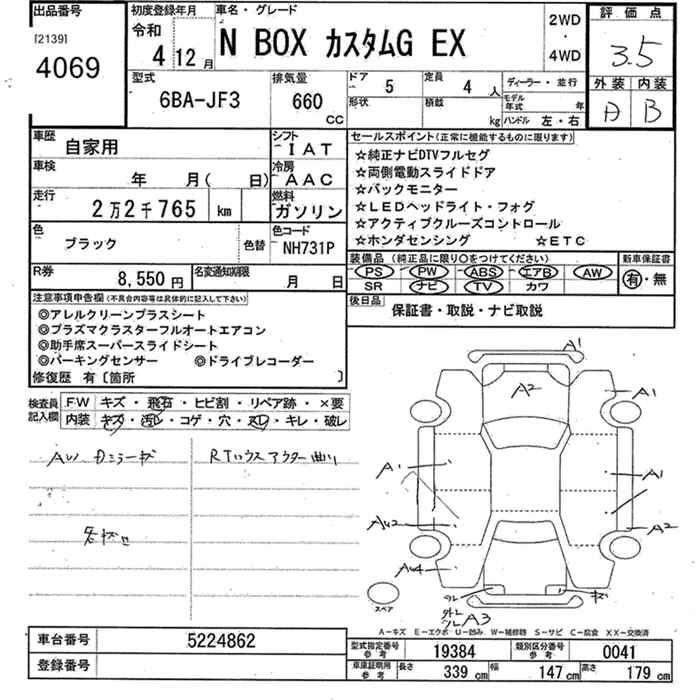 出品番号
[2139]
4069
初度登録年月
令和
4 12月
車名・グレード
N BOX カスタムG EX
2WD
・
4WD
評価点
3.5
外装 内装
A B
型式
6BA-JF3
排気量
660
CC
ドア
5
形状
定員
4 人
積載
kg
ディーラー・並行
モデル年式 年
ハンドル 左・右
車歴
自家用
シフト
IAT
車検
年 月( 日)
冷房
AAC
走行
2万2千765 km
燃料
ガソリン
色
ブラック
色替
色コード
NH731P
R券
8,550円
名変通知期限
月 日
セールスポイント(正常に機能するものに限ります)
☆純正ナビDTVフルセグ
☆両側電動スライドドア
☆バックモニター
☆LEDヘッドライト・フォグ
☆アクティブクルーズコントロール
☆ホンダセンシング ☆ETC
装備品(純正品に限り○をつけてください)
PS PW ABS エアB AW
SR ナビ TV カワ
新車保証書
有・無
後日品
保証書・取説・ナビ取説
注意事項申告欄(不具合内容等は具体的に記入して下さい)
◎アレルクリーンプラスシート
◎プラズマクラスターフルオートエアコン
◎助手席スーパースライドシート
◎パーキングセンサー ◎ドライブレコーダー
修復歴 有〔箇所 〕
検査員記入欄
FW キズ・飛石・ヒビ割・リペア跡・×要
内装 キズ・汚レ・コゲ・穴・スレ・キレ・破レ
RTハウスアウター曲り
A1
A2
A1
A1
A1
A2
A3
スペア
A−キズ E−エクボ U−凹み W−補修跡 S−サビ C−腐食 XX−交換済
車台番号
5224862
登録番号
型式指定番号参考
19384
類別区分番号参考
0041
車庫証明用参考
長さ 339 cm
幅 147 cm
高さ 179 cm